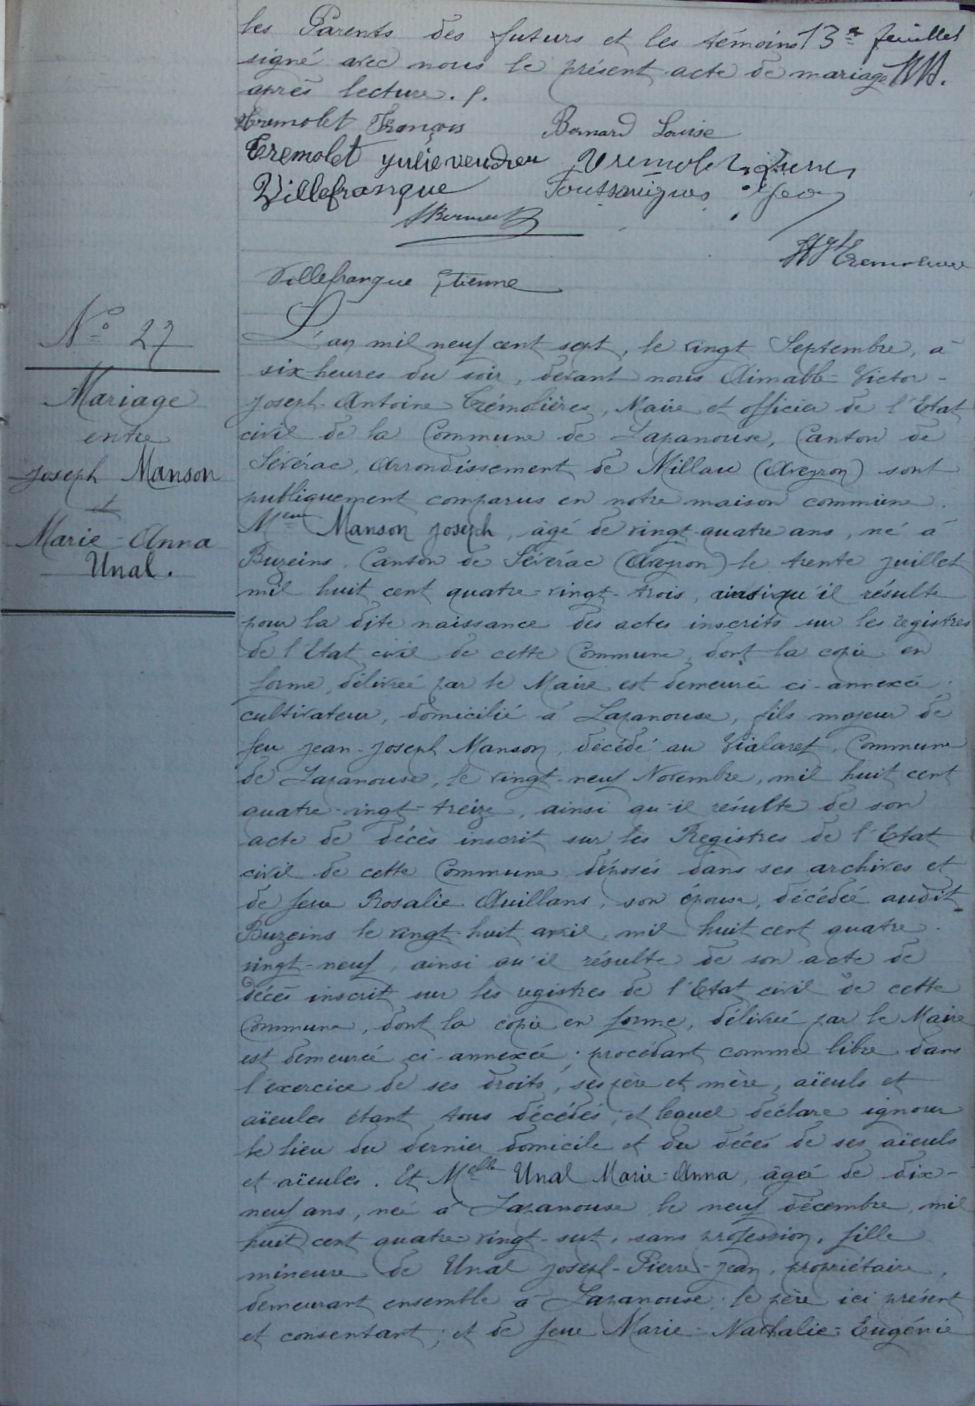 les Parents des futurs et les témoins 13e feuillet
signé avec nous le présent acte de mariage
après lecture.
Tremolet François Bernard Louise
Tremolet Julie Tremolet
Villefranque
Villefranque Etienne
No 27
Mariage
entre
Joseph Manson
et
Marie-Anna
Unal.
L'an mil neuf cent sept, le vingt Septembre, à
six heures du soir, devant nous Aimable-Victor-
Joseph-Antoine Trémolières, Maire et officier de l'Etat
civil de la Commune de Lapanouse, Canton de
Sévérac, Arrondissement de Millau (Aveyron) sont
publiquement comparus en notre maison commune.
Manson Joseph, âgé de vingt-quatre ans, né à
Buzeins, Canton de Sévérac (Aveyron) le trente juillet
mil huit cent quatre-vingt-trois, ainsi qu'il résulte
pour la dite naissance des actes inscrits sur les registres
de l'Etat civil de cette Commune, dont la copie en
forme, délivrée par le Maire est demeurée ci-annexée.
cultivateur, domicilié à Lapanouse, fils majeur de
feu Jean-Joseph Manson, décédé au Vialaret, Commune
de Lapanouse, le vingt-neuf Novembre, mil huit cent
quatre-vingt-treize, ainsi qu'il résulte de son
acte de décès inscrit sur les Registres de l'Etat
civil de cette Commune déposés dans ses archives et
de feue Rosalie Quillans, son épouse, décédée audit
Buzeins le vingt-huit avril, mil huit cent quatre-
vingt-neuf, ainsi qu'il résulte de son acte de
décès inscrit sur les registres de l'Etat civil de cette
Commune, dont la copie en forme, délivrée par le Maire
est demeurée ci-annexée; procédant comme libre dans
l'exercice de ses droits, ses père et mère, aïeuls et
aïeules étant tous décédés, et lequel déclare ignorer
le lieu du dernier domicile et du décès de ses aïeuls
et aïeules. Et Melle Unal Marie-Anna, âgée de dix-
neuf ans, née à Lapanouse le neuf décembre, mil
huit cent quatre-vingt-sept, sans profession, fille
mineure de Unal Joseph-Pierre-Jean, propriétaire,
demeurant ensemble à Lapanouse; le père ici présent
et consentant; et de feue Marie-Nathalie-Eugénie